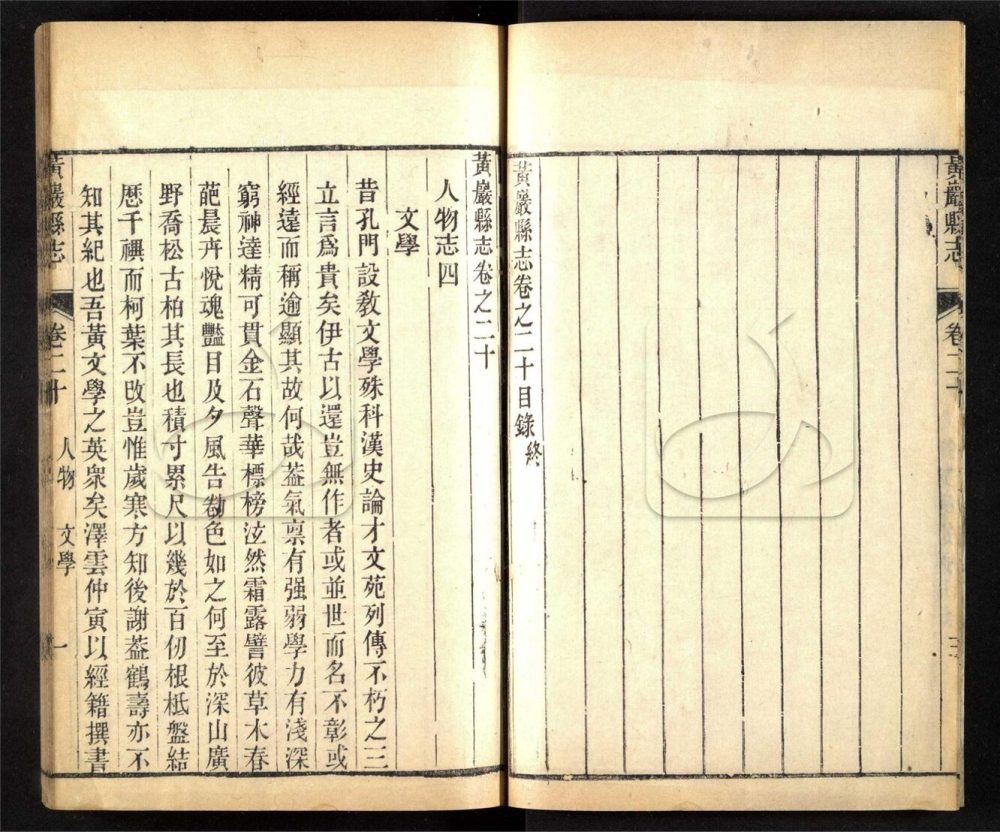 黃巖縣志
黃巖縣志卷之二十目錄終
黃巖縣志卷之二十
人物志四
文學
昔孔門設敎文學殊科漢史論才文苑列傳不朽之三
立言爲貴矣伊古以還豈無作者或並世而名不彰或
經遠而稱逾顯其故何哉葢氣禀有强弱學力有淺深
窮神達精可貫金石聲華標榜泫然霜露譬彼草木春
葩晨卉悅魂豔目及夕風告勌色如之何至於深山廣
野喬松古柏其長也積寸累尺以幾於百仞根柢盤結
歷千禩而柯葉不攺豈惟歲寒方知後謝葢鶴壽亦不
知其紀也吾黃文學之英衆矣澤雲仲寅以經籍撰書
黃巖縣志 卷二十 人物 文學 一